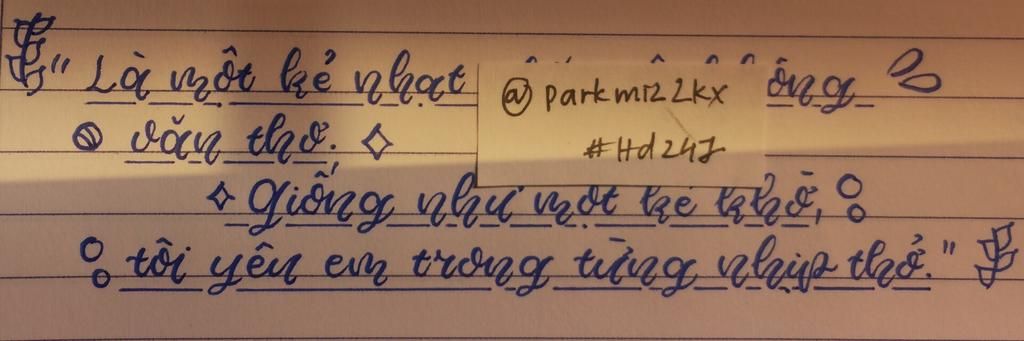 "Là một kẻ nhạt
văn thơ;
@parkmi22kx
Giống như một kẻ khờ,
tôi yêu em trong từng nhịp thở."